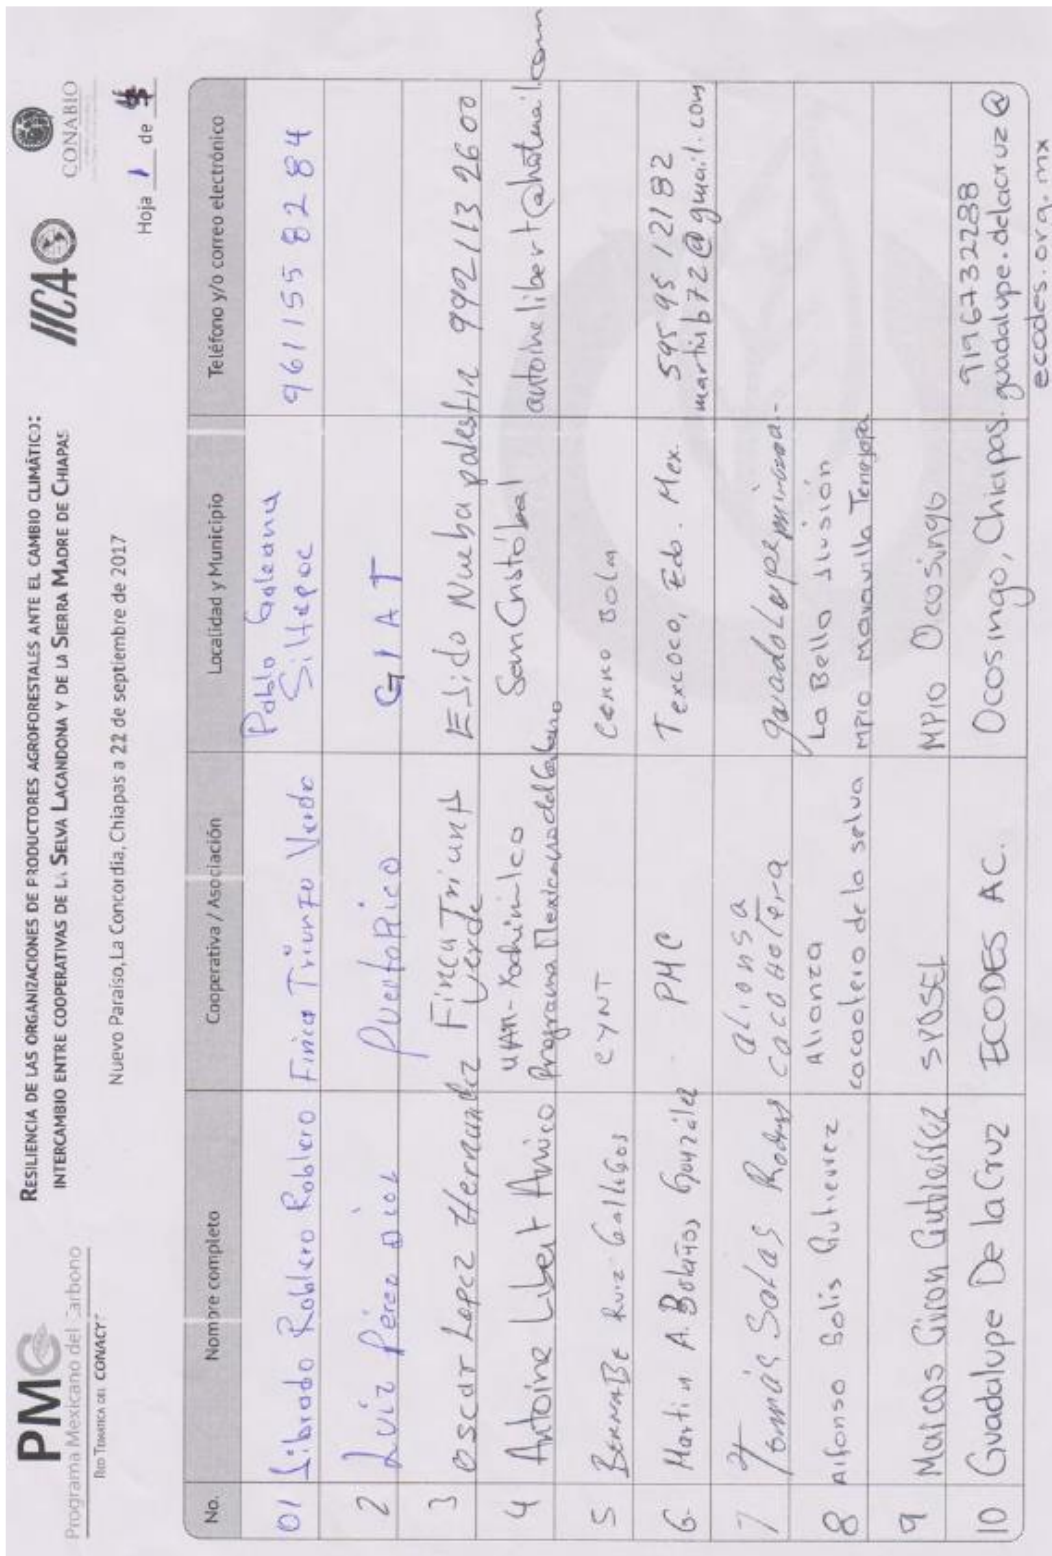 PMC
Programa Mexicano del Carbono
RED TEMÁTICA DEL CONACYT
RESILIENCIA DE LAS ORGANIZACIONES DE PRODUCTORES AGROFORESTALES ANTE EL CAMBIO CLIMÁTICO:
INTERCAMBIO ENTRE COOPERATIVAS DE LA SELVA LACANDONA Y DE LA SIERRA MADRE DE CHIAPAS
IICA
CONABIO
Nuevo Paraíso, La Concordia, Chiapas a 22 de septiembre de 2017
Hoja 1 de
No. Nombre completo Cooperativa / Asociación Localidad y Municipio Teléfono y/o correo electrónico
01 Librado Roblero Roblero Finca Triunfo Verde Pablo Galeana 961 155 82 84
Siltepec
2 Luiz Pérez GIAT
3 oscar Lopez Hernandez Finca Triunf EJido Nueba palestin 992 113 26 00
Verde
4 Antoine Libert Amico UAM-Xochimilco San Cristóbal antoinelibert@hotmail.com
Programa Mexicano del Carbono
5 BERNABE Ruiz Gallegos CYNT CERRO BOLA
6- Martin A. Bolaños González PMC Texcoco, Edo. Mex. 595 95 12182
martinb72@gmail.com
7 Tomás Solas Rodrig alionsa
cacaotera
8 Alfonso Solis Gutierrez Alianza La Bella Ilusión
cacaotero de la selva MPIO Maravilla Tenejapa
9 Marcos Giron Gutierrez SPOSEL MPIO Ocosingo
10 Guadalupe De la Cruz ECODES AC. Ocosingo, Chiapas. 9196732288
guadalupe.delacruz@
ecodes.org.mx